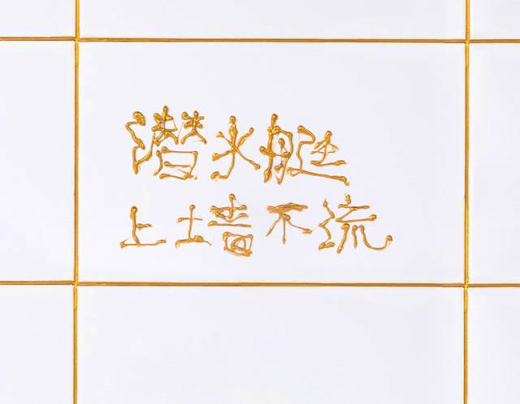 潜水艇
上墙不流